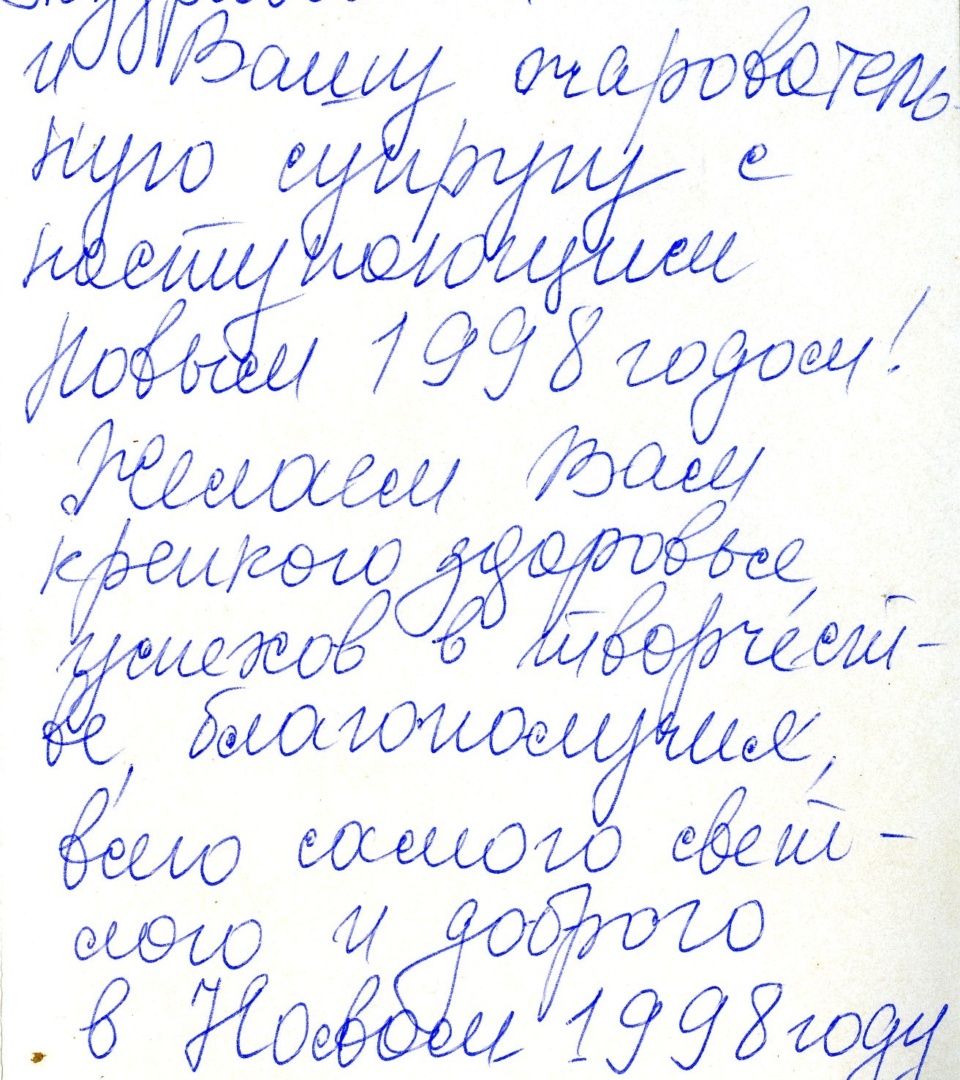 и Вашу очарователь-
ную супругу с
наступающим
Новым 1998 годом!
Желаем Вам
крепкого здоровья,
успехов в творчест-
ве, благополучия,
всего самого свет-
лого и доброго
в Новом 1998 году